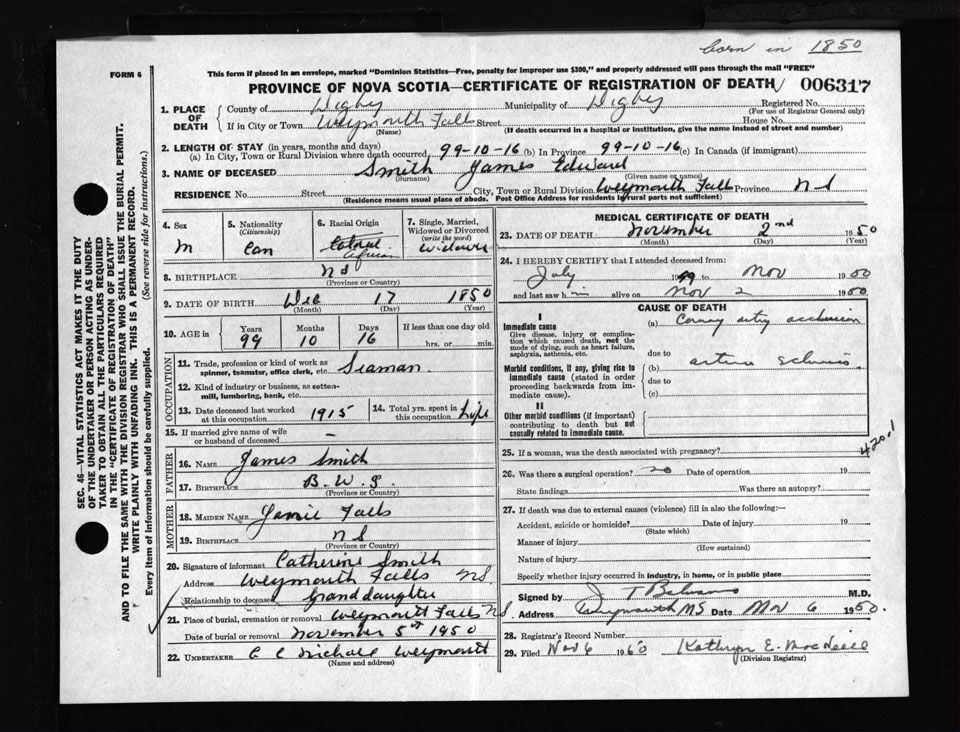 born in 1850
FORM 6
This form if placed in an envelope, marked "Dominion Statistics—Free, penalty for improper use $300," and properly addressed will pass through the mail "FREE"
PROVINCE OF NOVA SCOTIA—CERTIFICATE OF REGISTRATION OF DEATH 006317
1. PLACE OF DEATH County of Digby Municipality of Digby Registered No. (For use of Registrar General only)
If in City or Town Weymouth Falls Street House No.
(Name) (If death occurred in a hospital or institution, give the name instead of street and number)
2. LENGTH OF STAY (in years, months and days)
(a) In City, Town or Rural Division where death occurred 99-10-16 (b) In Province 99-10-16 (c) In Canada (if immigrant)
3. NAME OF DECEASED Smith James Edward
(Surname) (Given name or names)
RESIDENCE No. Street City, Town or Rural Division Weymouth Falls Province N S
(Residence means usual place of abode. Post Office Address for residents in rural parts not sufficient)
4. Sex M
5. Nationality (Citizenship) Can
6. Racial Origin African
7. Single, Married, Widowed or Divorced (write the word) Widower
8. BIRTHPLACE N S
(Province or Country)
9. DATE OF BIRTH Dec 17 1850
(Month) (Day) (Year)
10. AGE in Years 99 Months 10 Days 16 If less than one day old hrs. or min.
OCCUPATION
11. Trade, profession or kind of work as spinner, teamster, office clerk, etc. Seaman
12. Kind of industry or business, as cotton-mill, lumbering, bank, etc.
13. Date deceased last worked at this occupation 1915
14. Total yrs. spent in this occupation Life
15. If married give name of wife or husband of deceased —
FATHER
16. NAME James Smith
17. BIRTHPLACE B. W. I.
(Province or Country)
MOTHER
18. MAIDEN NAME Falls
19. BIRTHPLACE N S
(Province or Country)
20. Signature of informant Catherine Smith
Address Weymouth Falls N.S.
Relationship to deceased Granddaughter
21. Place of burial, cremation or removal Weymouth Falls N S
Date of burial or removal November 5th 1950
22. UNDERTAKER Weymouth
(Name and address)
MEDICAL CERTIFICATE OF DEATH
23. DATE OF DEATH November 2nd 1950
(Month) (Day) (Year)
24. I HEREBY CERTIFY that I attended deceased from:
July 1949 to Nov 1950
and last saw him alive on Nov 2 1950
CAUSE OF DEATH
I
Immediate cause
Give disease, injury or complication which caused death, not the mode of dying, such as heart failure, asphyxia, asthenia, etc.
(a)
due to
Morbid conditions, if any, giving rise to immediate cause (stated in order proceeding backwards from immediate cause).
(b)
due to
(c)
II
Other morbid conditions (if important) contributing to death but not causally related to immediate cause.
25. If a woman, was the death associated with pregnancy?
420.1
26. Was there a surgical operation? no Date of operation 19
State findings Was there an autopsy?
27. If death was due to external causes (violence) fill in also the following:—
Accident, suicide or homicide? Date of injury 19
(State which)
Manner of injury
(How sustained)
Nature of injury
Specify whether injury occurred in industry, in home, or in public place
Signed by M.D.
Address Weymouth NS Date Nov 6 1950.
28. Registrar's Record Number
29. Filed Nov 6 1950 Kathryn E. MacNeill
(Division Registrar)
SEC. 46—VITAL STATISTICS ACT MAKES IT THE DUTY
OF THE UNDERTAKER OR PERSON ACTING AS UNDER-
TAKER TO OBTAIN ALL THE PARTICULARS REQUIRED
IN THE "CERTIFICATE OF REGISTRATION OF DEATH"
AND TO FILE THE SAME WITH THE DIVISION REGISTRAR WHO SHALL ISSUE THE BURIAL PERMIT.
WRITE PLAINLY WITH UNFADING INK. THIS IS A PERMANENT RECORD.
Every item of information should be carefully supplied. (See reverse side for instructions.)